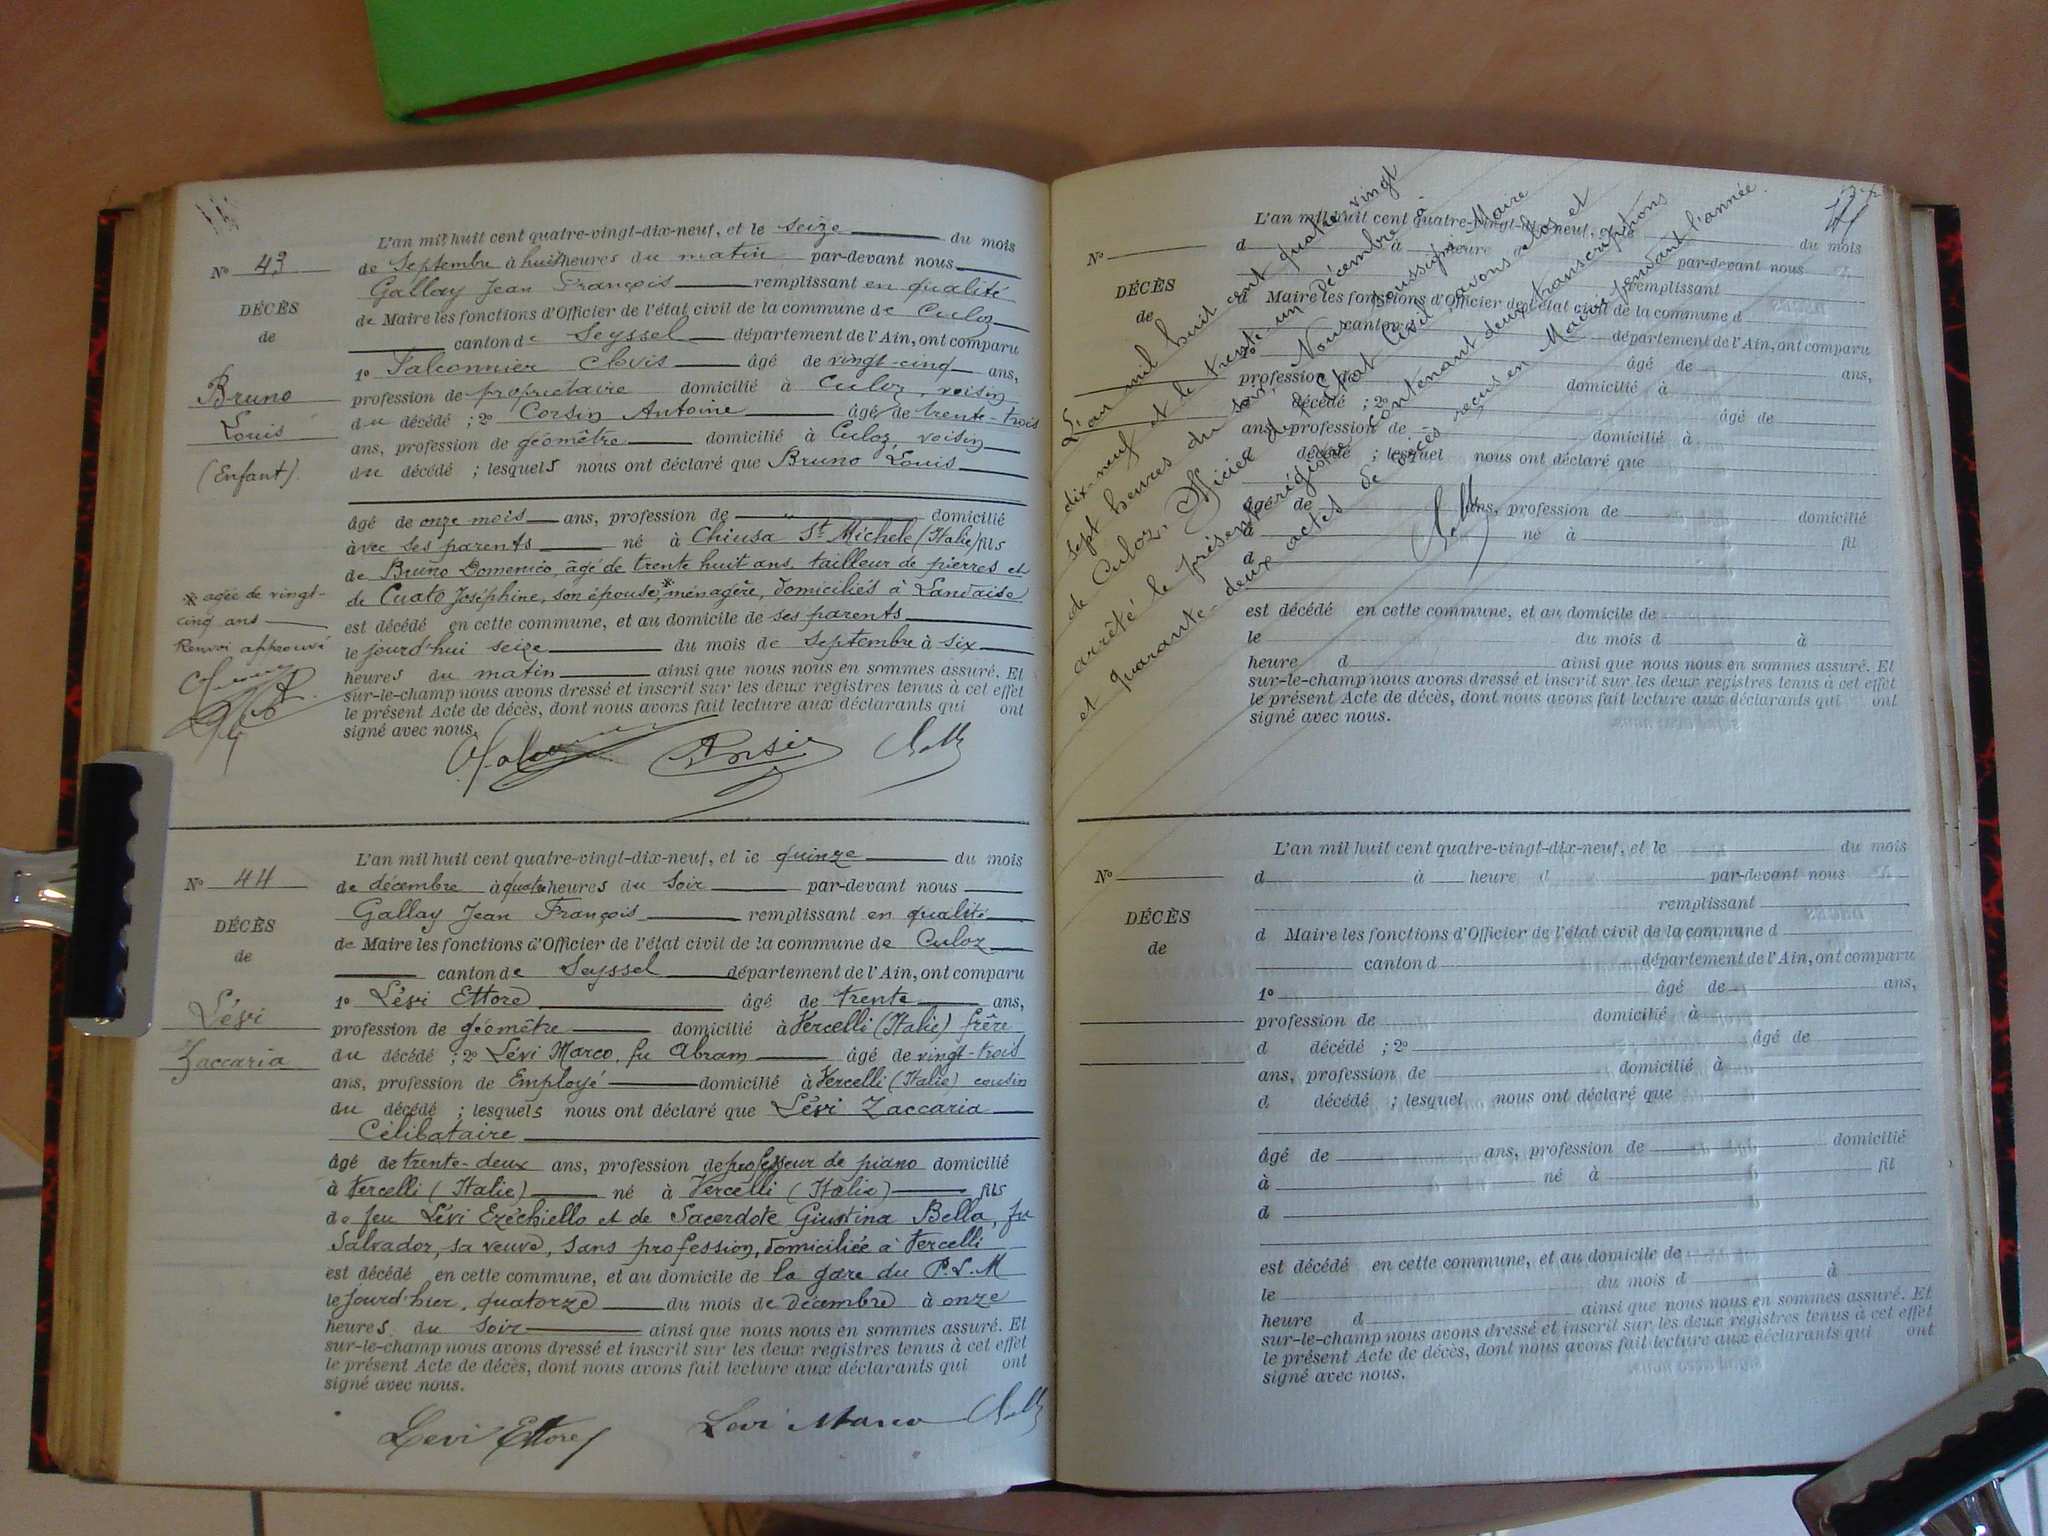 L'an mil huit cent quatre-vingt-dix-neuf, et le seize du mois
N° 43
de Septembre à huit heures du matin par-devant nous
Gallay Jean François remplissant en qualité
DÉCÈS
de Maire les fonctions d'Officier de l'état civil de la commune de Culoz
de
canton de Seyssel département de l'Ain, ont comparu
1° Falconnier Clovis âgé de vingt-cinq ans,
Bruno
profession de propriétaire domicilié à Culoz, voisin
du décédé ; 2° Corsin Antoine âgé de trente-trois
Louis
ans, profession de géomètre domicilié à Culoz, voisin
(Enfant).
du décédé ; lesquels nous ont déclaré que Bruno Louis
âgé de onze mois ans, profession de " domicilié
avec ses parents né à Chiusa St Michele (Italie) fils
de Bruno Domenico, âgé de trente huit ans, tailleur de pierres et
de Cuato Joséphine, son épouse,* ménagère, domiciliés à Landaise
* agée de vingt-
cinq ans
Renvoi approuvé
est décédé en cette commune, et au domicile de ses parents
le jourd'hui seize du mois de Septembre à six
heures du matin ainsi que nous nous en sommes assuré. Et
sur-le-champ nous avons dressé et inscrit sur les deux registres tenus à cet effet
le présent Acte de décès, dont nous avons fait lecture aux déclarants qui ont
signé avec nous.
L'an mil huit cent quatre-vingt-dix-neuf, et le quinze du mois
N° 44
de décembre à quatre heures du soir par-devant nous
Gallay Jean François remplissant en qualité
DÉCÈS
de Maire les fonctions d'Officier de l'état civil de la commune de Culoz
de
canton de Seyssel département de l'Ain, ont comparu
1° Lévi Ettore âgé de trente ans,
Lévi
profession de géomètre domicilié à Vercelli (Italie) frère
Zaccaria
du décédé ; 2° Lévi Marco, fu Abram âgé de vingt-trois
ans, profession de Employé domicilié à Vercelli (Italie) cousin
du décédé ; lesquels nous ont déclaré que Lévi Zaccaria
Célibataire
âgé de trente-deux ans, profession de professeur de piano domicilié
à Vercelli (Italie) né à Vercelli (Italie) fils
de feu Lévi Ezéchiello et de Sacerdote Giustina Bella, fu
Salvador, sa veuve, sans profession, domiciliée à Vercelli
est décédé en cette commune, et au domicile de la gare du P.L.M
le jourd'hier, quatorze du mois de décembre à onze
heures du soir ainsi que nous nous en sommes assuré. Et
sur-le-champ nous avons dressé et inscrit sur les deux registres tenus à cet effet
le présent Acte de décès, dont nous avons fait lecture aux déclarants qui ont
signé avec nous.
Levi Ettore
Levi Marco
L'an mil huit cent quatre vingt
dix-neuf et le trente-un Décembre à
sept heures du soir, Nous soussigné Maire
de Culoz, Officier de l'état Civil, avons clos et
arrêté le présent régistre contenant deux transcriptions
et quarante-deux actes de décès reçus en Mairie pendant l'année.
L'an mil huit cent quatre-vingt-dix-neuf, et le du mois
N° d à heure par-devant nous
remplissant
DÉCÈS
d Maire les fonctions d'Officier de l'état civil de la commune d
de
canton département de l'Ain, ont comparu
1° âgé de ans,
profession de domicilié à
décédé ; 2° âgé de
ans, profession de domicilié à
décédé ; lesquel nous ont déclaré que
âgé de ans, profession de domicilié
à né à fil
d
est décédé en cette commune, et au domicile de
le du mois d à
heure d ainsi que nous nous en sommes assuré. Et
sur-le-champ nous avons dressé et inscrit sur les deux registres tenus à cet effet
le présent Acte de décès, dont nous avons fait lecture aux déclarants qui ont
signé avec nous.
L'an mil huit cent quatre-vingt-dix-neuf, et le du mois
N° d à heure d par-devant nous
remplissant
DÉCÈS
d Maire les fonctions d'Officier de l'état civil de la commune d
de
canton d département de l'Ain, ont comparu
1° âgé de ans,
profession de domicilié à
d décédé ; 2° âgé de
ans, profession de domicilié à
d décédé ; lesquel nous ont déclaré que
âgé de ans, profession de domicilié
à né à fil
d
est décédé en cette commune, et au domicile de
le du mois d à
heure d ainsi que nous nous en sommes assuré. Et
sur-le-champ nous avons dressé et inscrit sur les deux registres tenus à cet effet
le présent Acte de décès, dont nous avons fait lecture aux déclarants qui ont
signé avec nous.